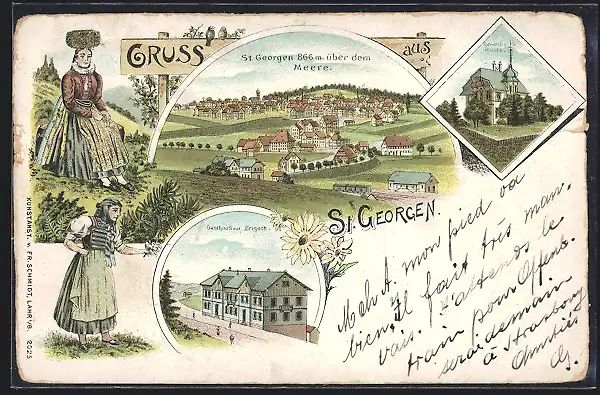 GRUSS aus
St Georgen 866 m. über dem
Meere.
ST. GEORGEN.
Gasthaus zur Brigach.
KUNSTANST. v. FR. SCHMIDT, LAHR i/B. 2025
mon pied va
bien, il fait très mau-
vais. J'attends le
train pour Offenb.
serai demain
à Strasbourg
Amitiés